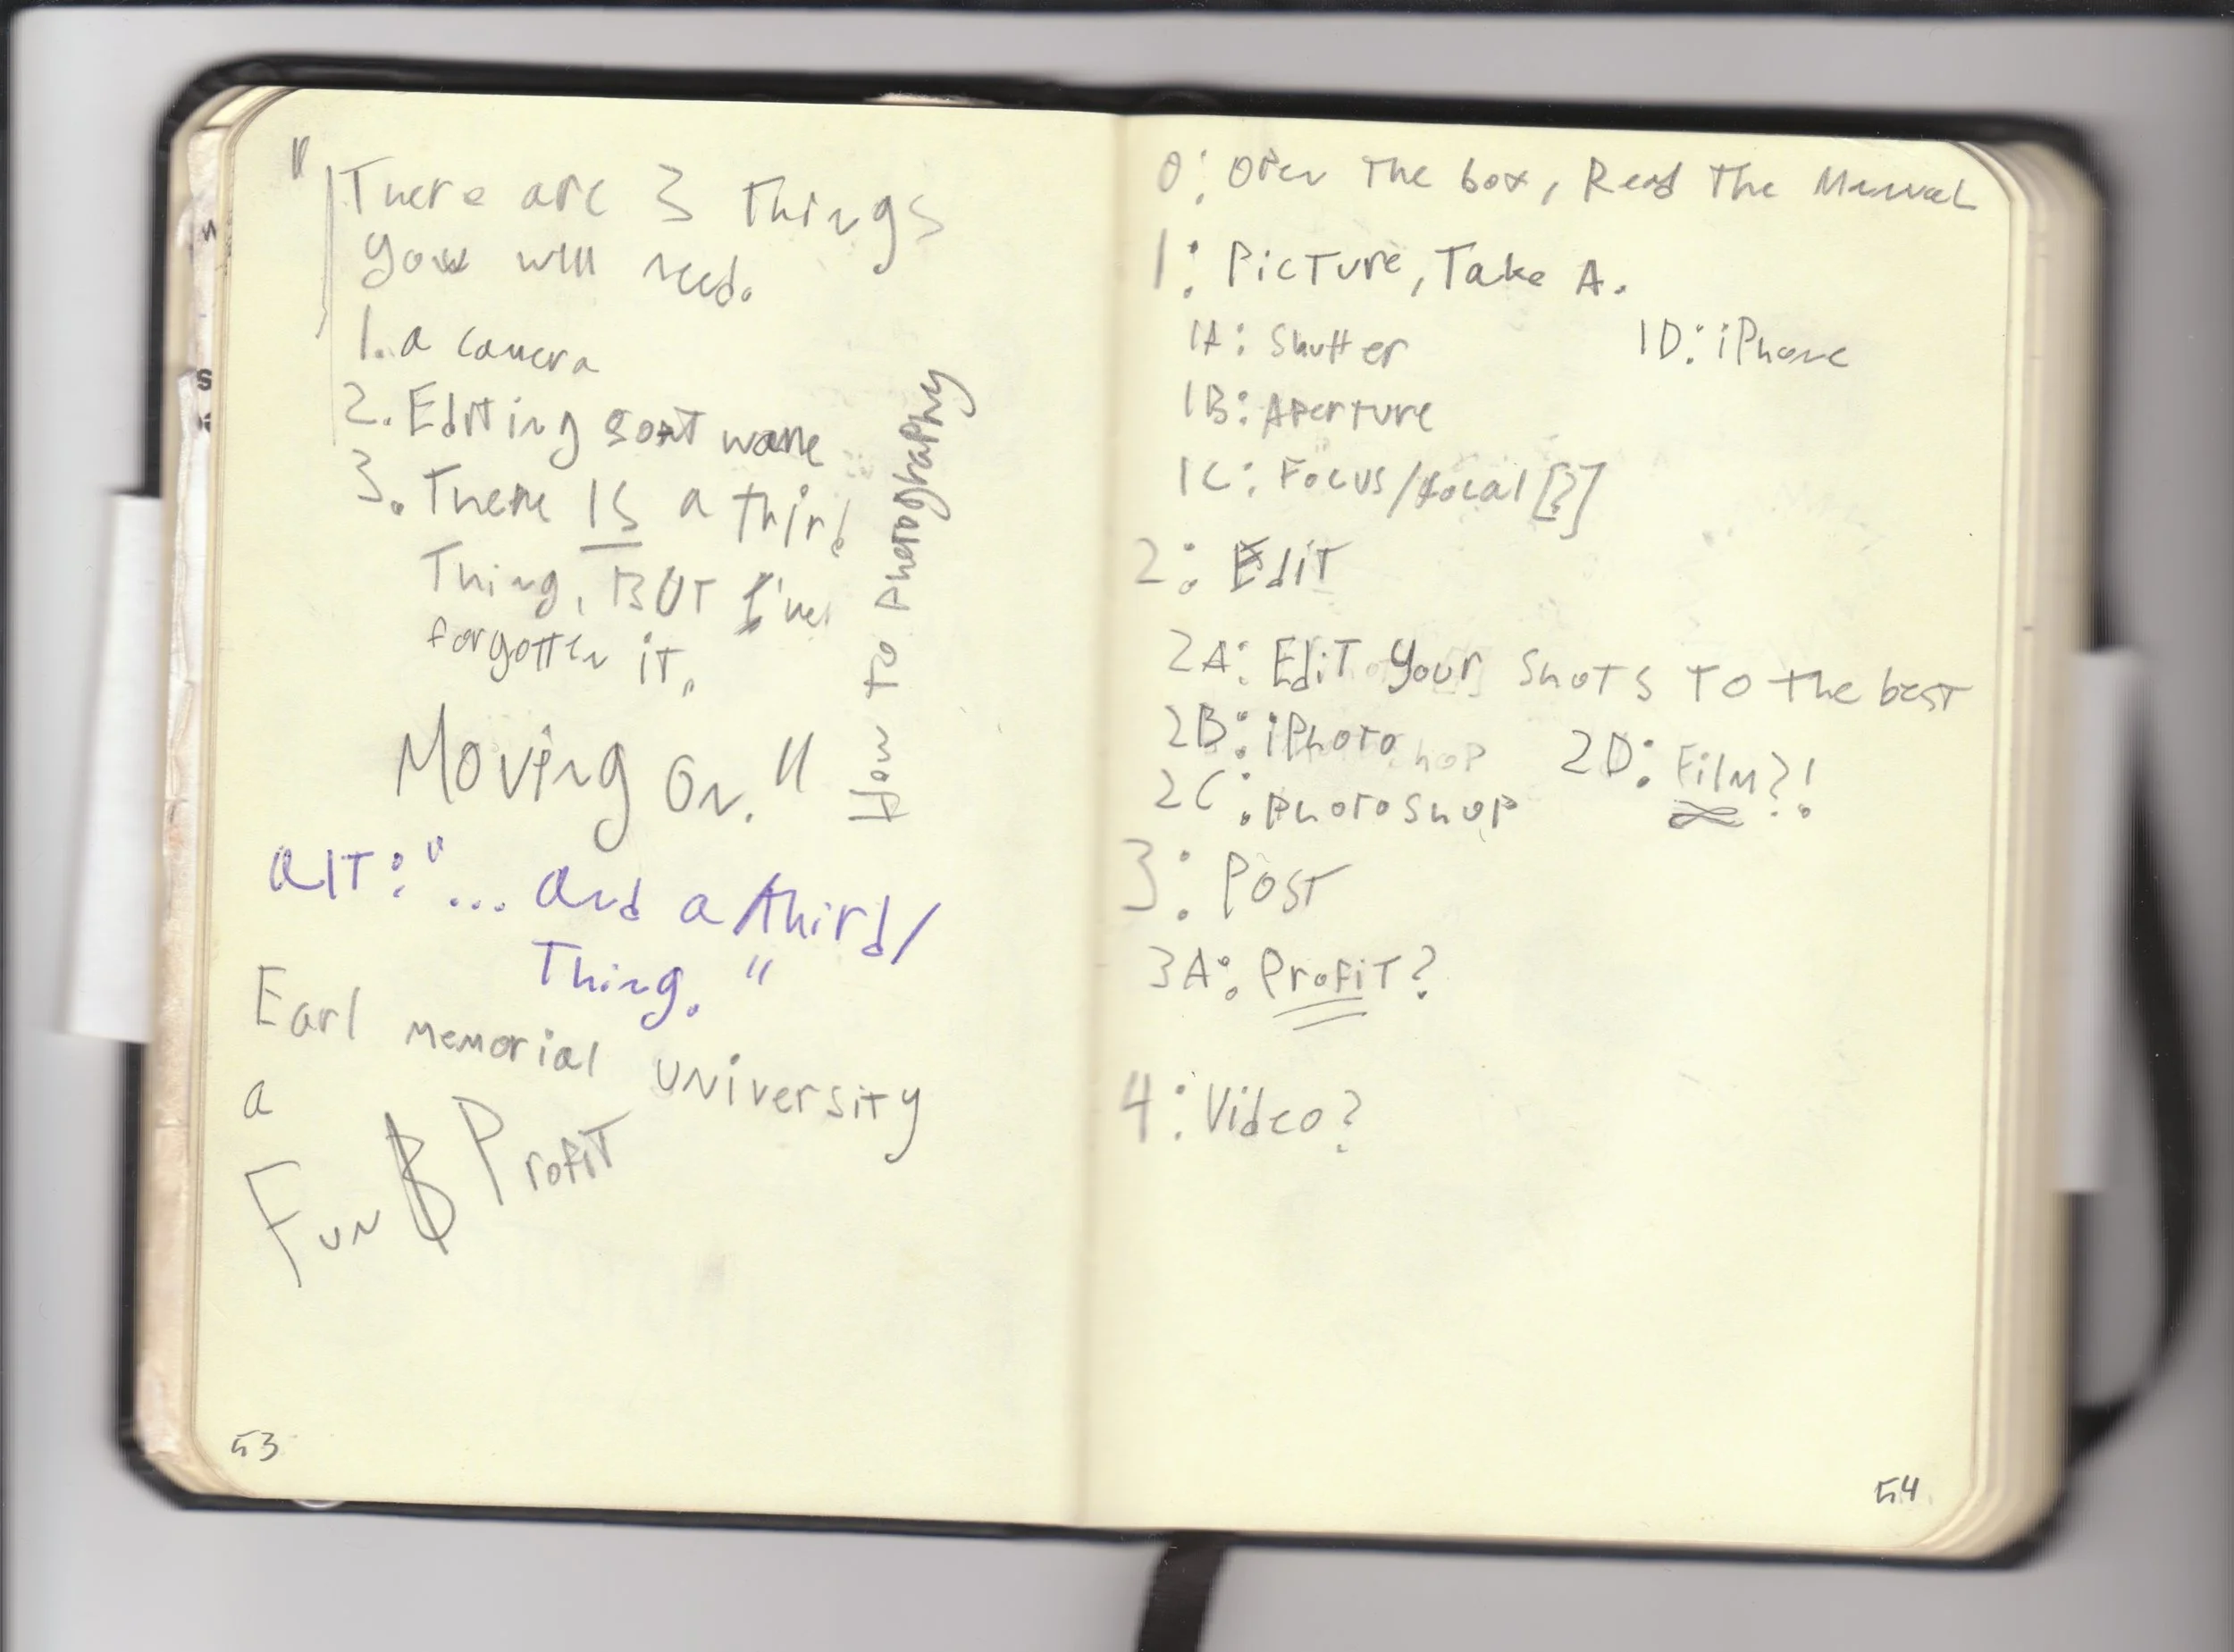 "There are 3 things
you will need.
1. a camera
2. Editing software
3. There IS a third
Thing, BUT I've
forgotten it.
Moving on."
How To Photography
alt: "... and a third/
Thing."
Earl Memorial University
a
Fun $ Profit
53
0: Open The box, Read The Manual
1: Picture, Take A.
1A: Shutter
1D: iPhone
1B: Aperture
1C: Focus/focal[?]
2: Edit
2A: Edit your shots To the best
2B: iPhoto
2D: Film?!
2C: Photoshop
3: Post
3A: Profit?
4: Video?
54